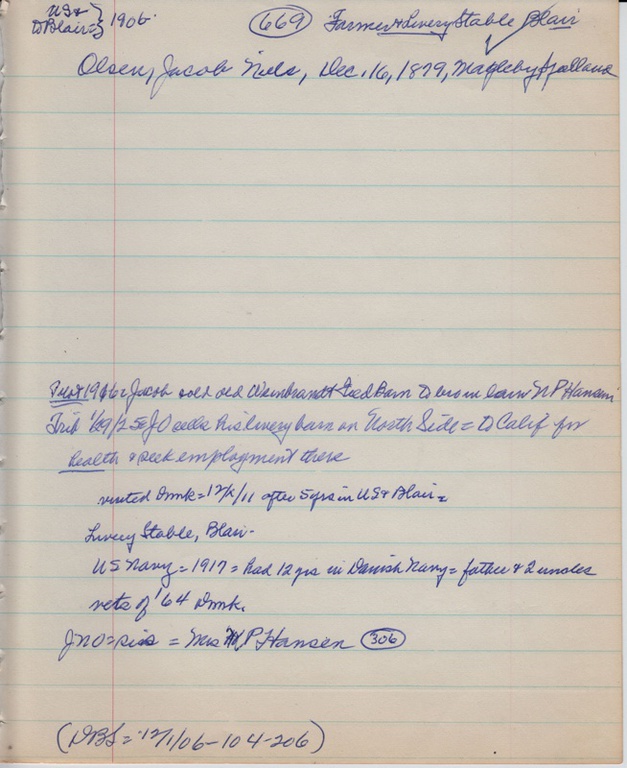 US & } 1906.
D Blair = (669) Farmer & Livery Stable Blair
Olsen, Jacob Nels, Dec. 16, 1879, Magleby Sjelland
1916 = Jacob sold old & Feed Barn to bro in law N P Hansen
Trib 1/29/25 = JO sells his livery barn on North Side = to Calif for
health & seek employment there
visited Dmk = 12/ /11 after 5 yrs in US & Blair =
Livery Stable, Blair.
US Navy = 1917 = had 12 yrs in Danish Navy = father & 2 uncles
vets of '64 Dmk.
JNO = sis = Mrs P Hansen (306)
(DBS = 12/1/06 - 104 - 206)